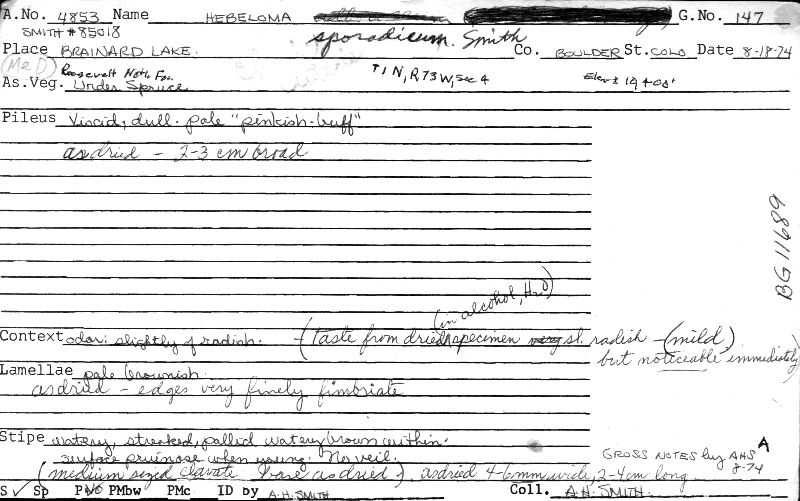 A.No. 4853 Name HEBELOMA G.No. 147
SMITH #85018 sporadicum. Smith
Place BRAINARD LAKE. Co. BOULDER St. COLO Date 8-18-74
(Me D) Roosevelt Natl. For. T1N, R73W, Sec 4
As.Veg. Under Spruce
Pileus Viscid, dull. pale "pinkish-buff"
as dried - 2-3 cm broad
BG11689
(in alcohol, H2O)
Context odor: slightly of radish. - (taste from dried specimen very sl. radish - (mild,
but noticeable immediately)
Lamellae pale brownish.
as dried - edges very finely fimbriate
Stipe watery, streaked, pallid watery brown within.
surface pruinose when young. No veil. GROSS NOTES by AHS A
8-74
(medium sized clavate base as dried), as dried 4-6mm wide, 2-4cm long
S ✓ Sp PNO PMbw PMc ID by A.H. SMITH Coll. A.H. SMITH